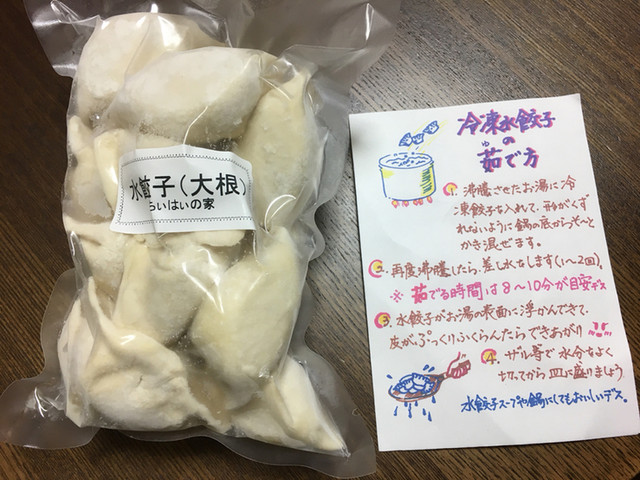 水餃子(大根)
らいはいの家
冷凍水餃子
の
ゆ
茹で方
1. 沸騰させたお湯に冷
凍餃子を入れて、形がくず
れないように鍋の底からそ〜と
かき混ぜます。
2. 再度沸騰したら、差し水をします(1〜2回)。
※ 茹でる時間は8〜10分が目安デス
3. 水餃子がお湯の表面に浮かんできて、
皮がぷっくりふくらんだらできあがり!!!
4. ザル等で水分をよく
切ってから皿に盛りましょう
水餃子スープや鍋にしてもおいしいデス。